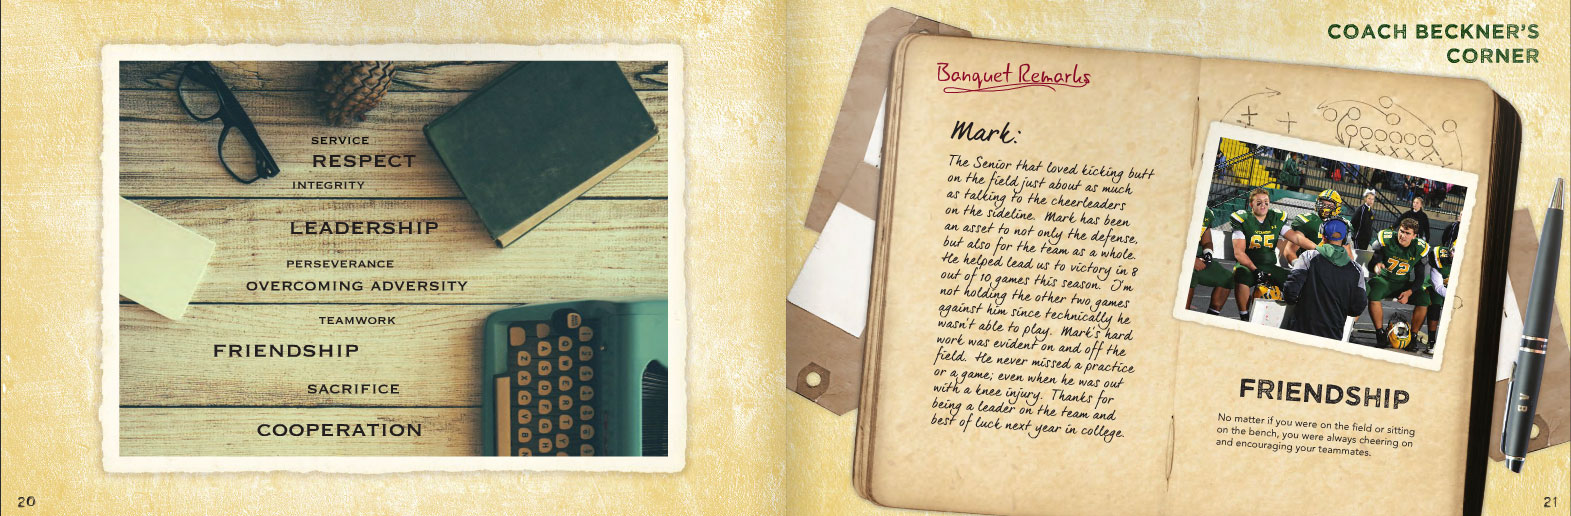 SERVICE
RESPECT
INTEGRITY
LEADERSHIP
PERSEVERANCE
OVERCOMING ADVERSITY
TEAMWORK
FRIENDSHIP
SACRIFICE
COOPERATION
20
COACH BECKNER'S
CORNER
Banquet Remarks
Mark:
The Senior that loved kicking butt
on the field just about as much
as talking to the cheerleaders
on the sideline. Mark has been
an asset to not only the defense,
but also for the team as a whole.
He helped lead us to victory in 8
out of 10 games this season. I'm
not holding the other two games
against him since technically he
wasn't able to play. Mark's hard
work was evident on and off the
field. He never missed a practice
or a game; even when he was out
with a knee injury. Thanks for
being a leader on the team and
best of luck next year in college.
65
72
FRIENDSHIP
No matter if you were on the field or sitting
on the bench, you were always cheering on
and encouraging your teammates.
A B
21